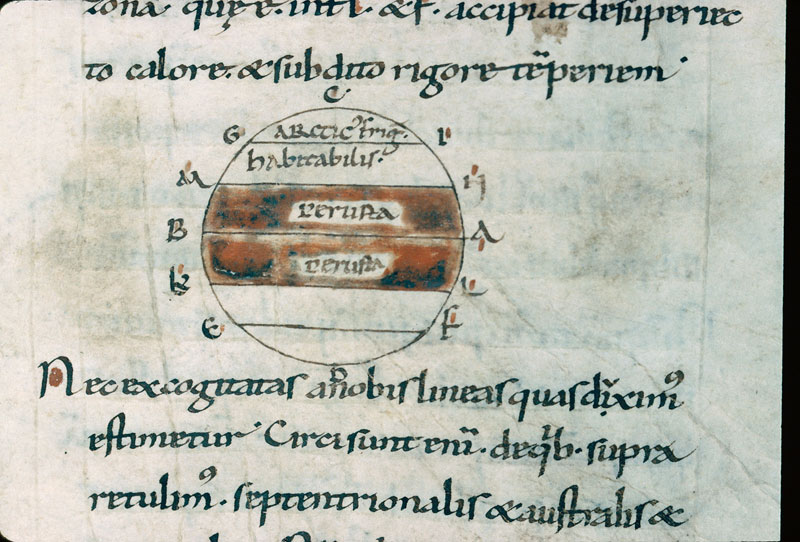 zona. quę e. int l. & f. accipiat desuperiec
to calore. & subdito rigore te̅periem
C
G arctic' frig. I
habitabilis.
M N
perusta
B A
perusta
K L
E F
Nec excogitatas a nobis lineas quas diximꝰ
estimetur. Circi sunt eni̅. de qb. supra
retulimꝰ. septentrionalis & australis &